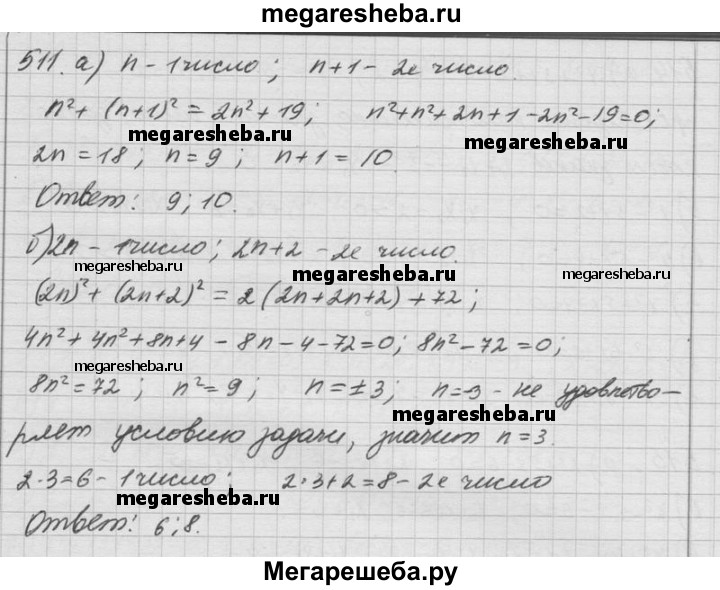 megaresheba.ru
511. а) n - 1число; n+1 - 2е число.
n² + (n+1)² = 2n² + 19; n²+n²+2n+1-2n²-19=0;
megaresheba.ru megaresheba.ru
2n = 18; n = 9; n+1 = 10
Ответ: 9; 10.
б) 2n - 1число; 2n+2 - 2е число.
megaresheba.ru megaresheba.ru megaresheba.ru
(2n)² + (2n+2)² = 2(2n+2n+2)+72;
4n² + 4n² + 8n + 4 - 8n - 4 - 72 = 0; 8n² - 72 = 0;
megaresheba.ru
8n² = 72; n² = 9; n = ±3; n = -3 - не удовлетво-
megaresheba.ru
ряет условию задачи, значит n = 3.
2·3=6 - 1число; 2·3+2=8 - 2е число
megaresheba.ru megaresheba.ru
Ответ: 6; 8.
megaresheba.ru
Мегарешеба.ру